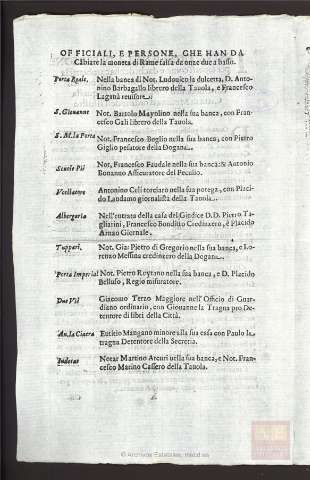 OFFICIALI, E PERSONE, CHE HAN DA
Cãbiare la moneta di Rame falsa de onze due a basso.
Porta Reale, Nella banca di Not. Ludouico la dulcetta, D. Anto-
nino Barbagallo librero della Tauola, e Francesco
Laganà reuisore.
S. Giouanne Not. Bartolo Mayolino nella sua banca, con Fran-
cesco Gali libreto della Tauola.
S. M. la Porta Not. Francesco Boglio nella sua banca, con Pietro
Giglio pesatore della Dogana
Scuole Pil Not, Francesco Faudale nella sua banca: & Antonio
Bonanno Assicuratore del Peculio.
Vcellatore Antonino Celi torciaro nella sua potega, con Placi-
do Landamo giornalista della Tauola.
Albergaria Nell'entrata della casa del Giudice D.D. Pietro Ta-
gliarini, Francesco Bonditto Credinzero, e Placido
Arnao Giornale.
Tuppari, Not. Gia: Pietro di Gregorio nella sua banca, e Lo-
renzo Messina credinzero della Dogana
Porta Imperial Not. Pietro Roytano nella sua banca, e D. Placido
Belluso, Regio misuratore.
Due Vil Giacomo Terzo Maggiore nell'Officio di Guar-
diano ordinario, con Giouanne la Tragna pro De-
tentore di libri della Città.
An. la Ciuera Eutitio Mangano minore alla sua casa con Paulo la
tragna Detentore della Secretia.
Iudeca Notar Martino Arcuri nella sua banca, e Not. Fran-
cesco Marino Cassero della Tauola.
© Archivos Estatales, mecd.es